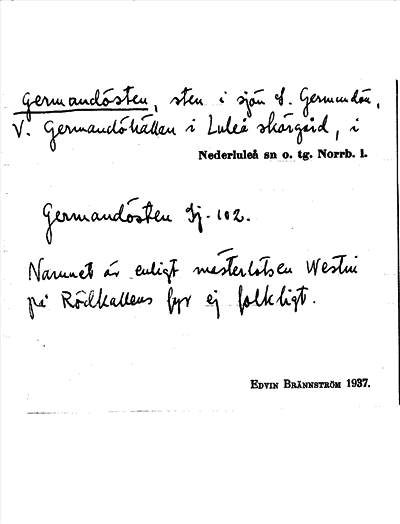 Germandösten, sten i sjön S. Germandön,
V. Germandöhällan i Luleå skärgård, i
Nederluleå sn o. tg. Norrb. l.
Germandösten Sj. 102.
Namnet är enligt mästerlotsen Westin
på Rödkallens fyr ej folkligt.
Edvin Brännström 1937.